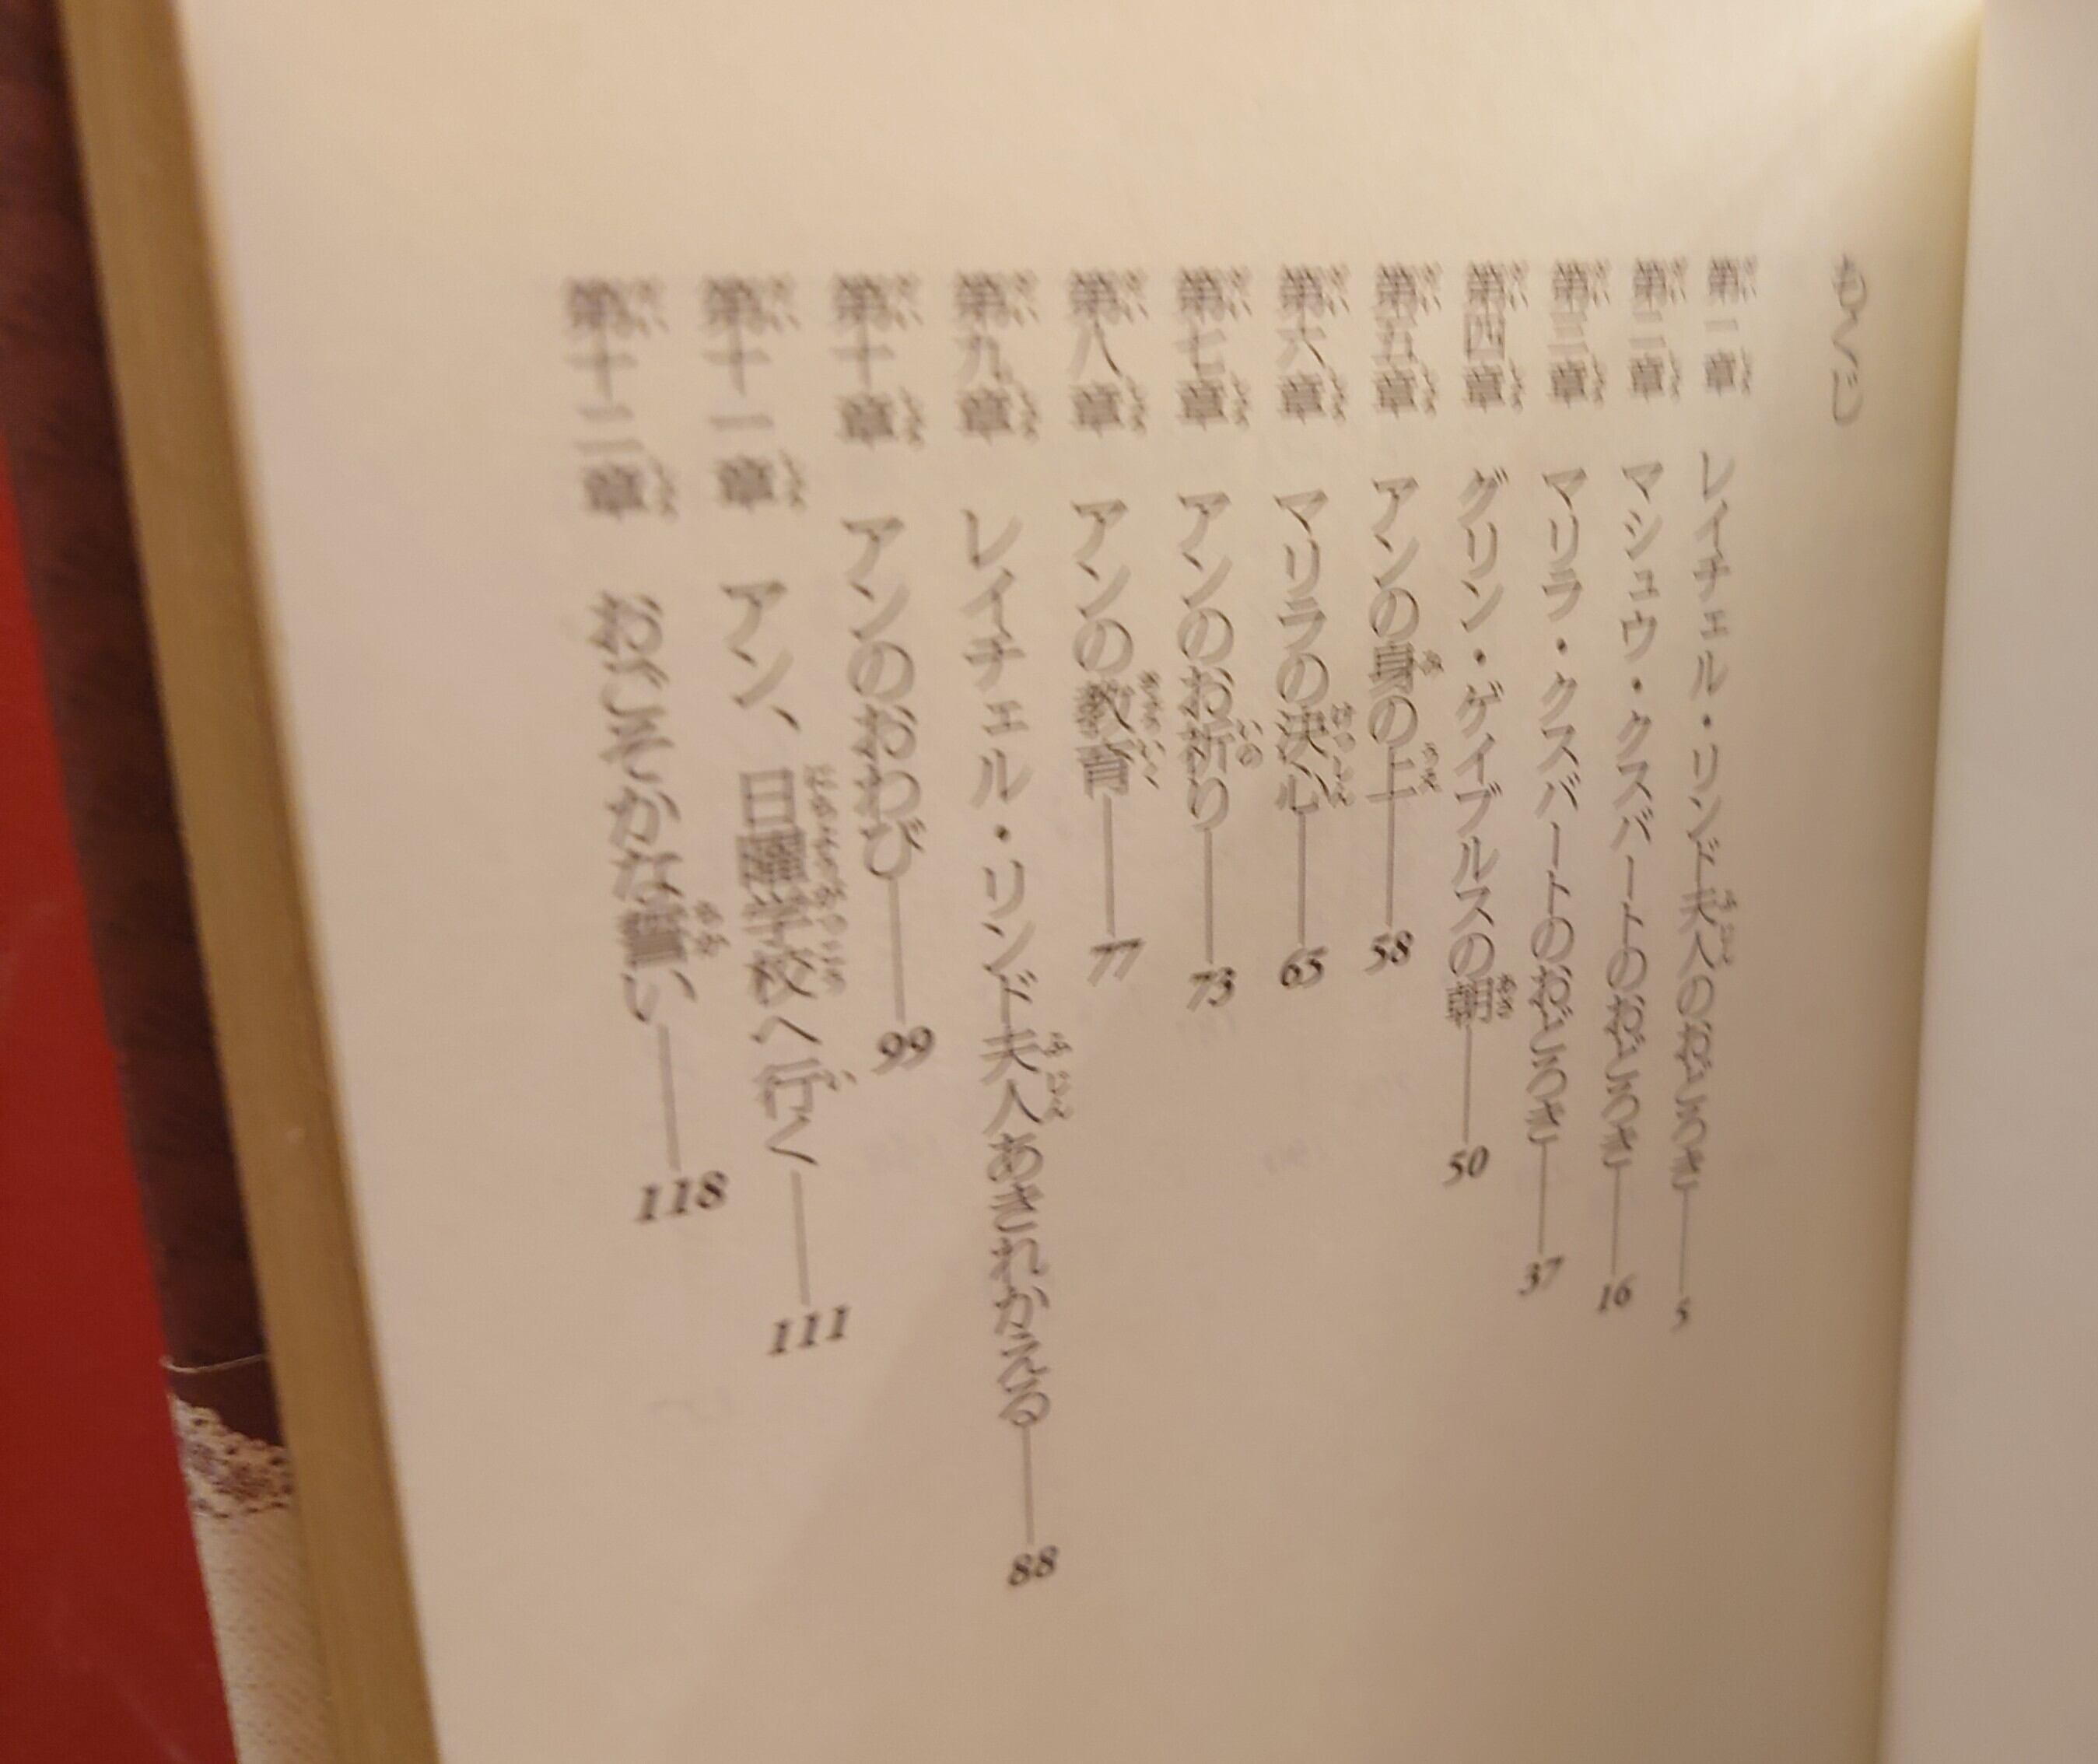 もくじ
第一章 レイチェル・リンド夫人のおどろき 5
第二章 マシュウ・クスバートのおどろき 16
第三章 マリラ・クスバートのおどろき 37
第四章 グリン・ゲイブルスの朝 50
第五章 アンの身の上 58
第六章 マリラの決心 65
第七章 アンのお祈り 73
第八章 アンの教育 77
第九章 レイチェル・リンド夫人あきれかえる 88
第十章 アンのおわび 99
第十一章 アン、日曜学校へ行く 111
第十二章 おごそかな誓い 118